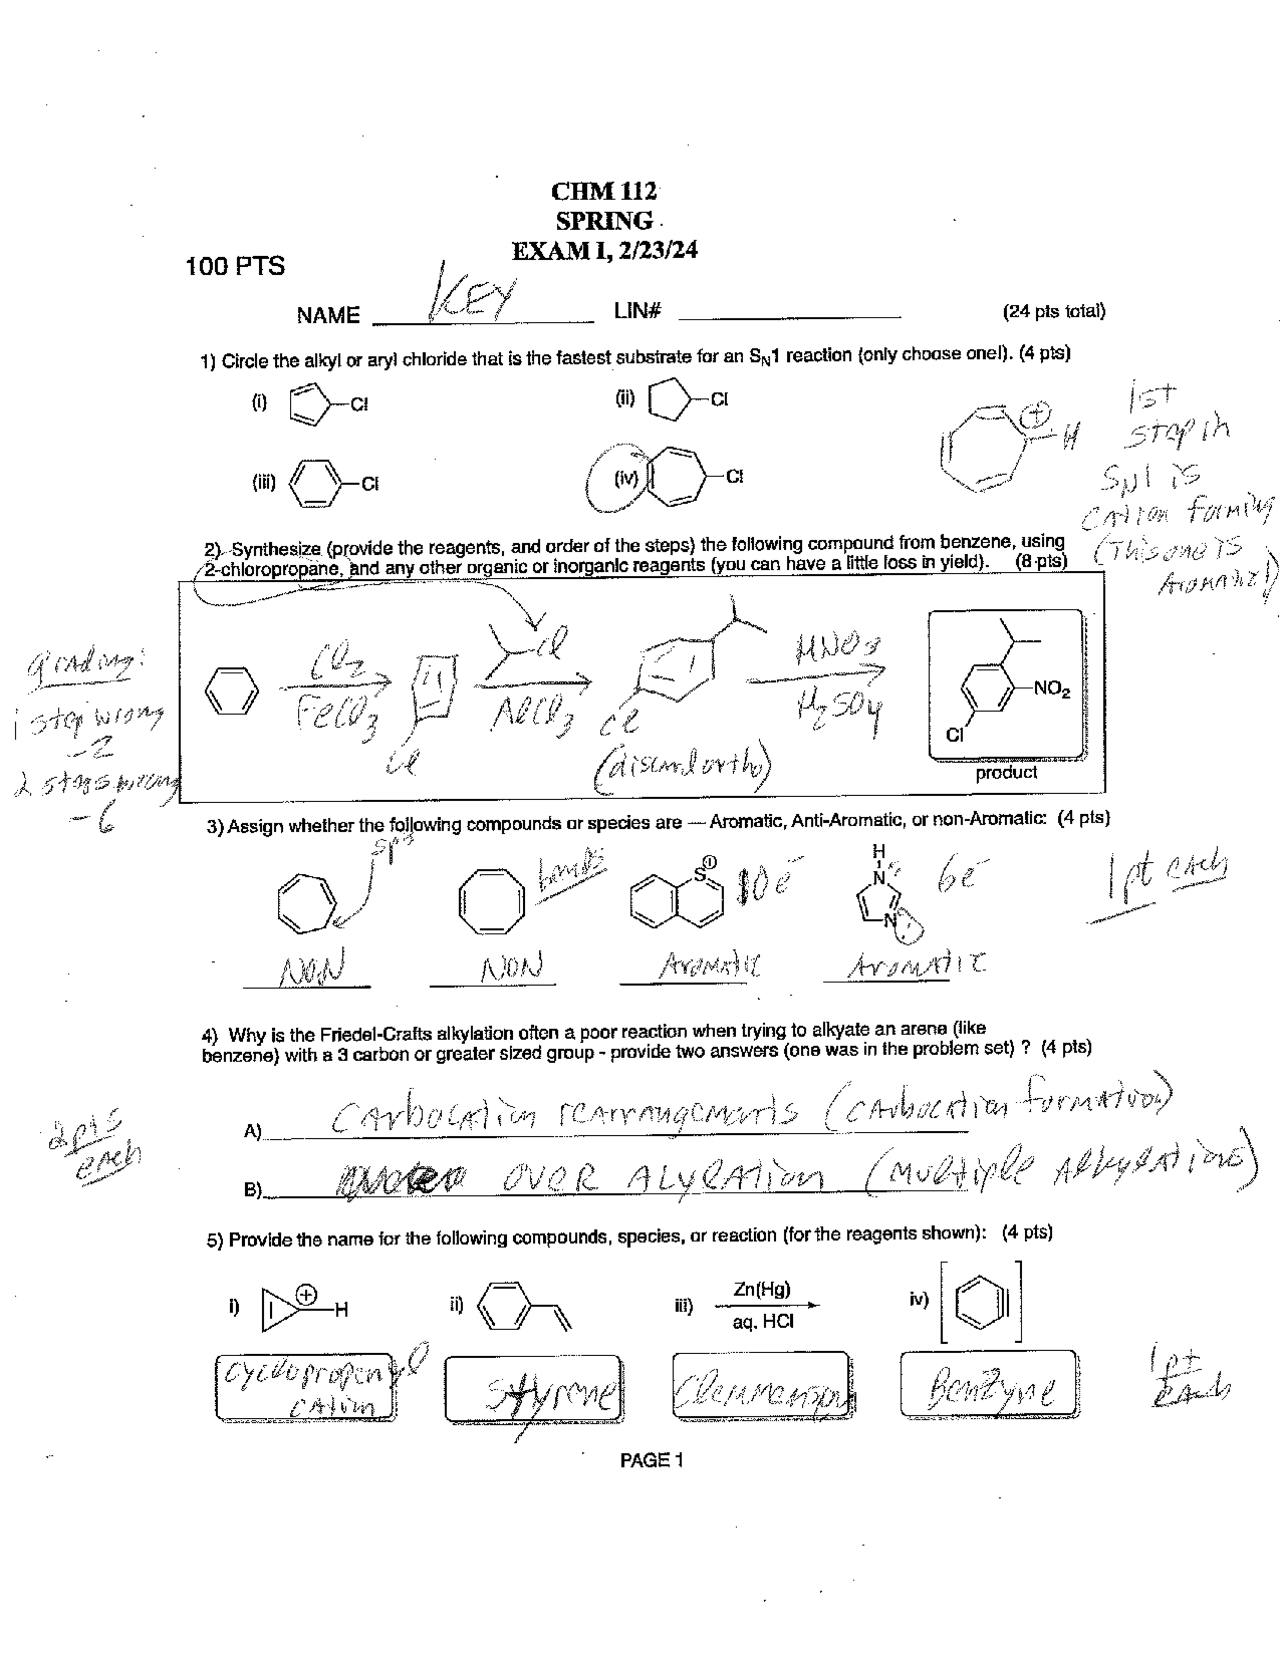 CHM 112
SPRING
EXAM I, 2/23/24
100 PTS
NAME KEY LIN# (24 pts total)
1) Circle the alkyl or aryl chloride that is the fastest substrate for an SN1 reaction (only choose one!). (4 pts)
(i) Cl (ii) Cl
(iii) Cl (iv) Cl
⊕ H
1st
step in
SN1 is
cation forming
(This one is
Aromatic!)
2) Synthesize (provide the reagents, and order of the steps) the following compound from benzene, using
2-chloropropane, and any other organic or inorganic reagents (you can have a little loss in yield). (8 pts)
grading:
1 step wrong
-2
2 steps wrong
-6
Cl2
FeCl3
Cl
Cl
AlCl3
Cl
(discard ortho)
HNO3
H2SO4
NO2
Cl
product
3) Assign whether the following compounds or species are — Aromatic, Anti-Aromatic, or non-Aromatic: (4 pts)
sp3
S⊕ 10e-
H
N
N
6e-
1pt each
NON NON Aromatic Aromatic
4) Why is the Friedel-Crafts alkylation often a poor reaction when trying to alkyate an arene (like
benzene) with a 3 carbon or greater sized group - provide two answers (one was in the problem set) ? (4 pts)
2pts
each
A) Carbocation rearrangements (carbocation formation)
B) OVER ALYLATION (Multiple Alkylations)
5) Provide the name for the following compounds, species, or reaction (for the reagents shown): (4 pts)
i) ⊕ H ii) iii) Zn(Hg) iv)
aq. HCl
cyclopropenyl
cation
Styrene
Benzyne
1pt
each
PAGE 1